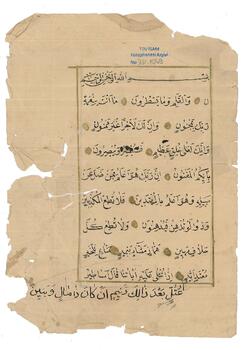 TDV İSAM
Kütüphanesi Arşivi
No
بسم الله الرحمن الرحيم
ن والقلم وما يسطرون ما انت بنعمة
ربك بمجنون وان لك لاجرا غير ممنون
وانك لعلى خلق عظيم فستبصر ويبصرون
بايكم المفتون ان ربك هو اعلم بمن ضل عن
سبيله وهو اعلم بالمهتدين فلا تطع المكذبين
ودوا لو تدهن فيدهنون ولا تطع كل
حلاف مهين هماز مشاء بنميم مناع للخير
معتد اثيم اذا تتلى عليه اياتنا قال اساطير
عتل بعد ذالك زنيم ان كان ذا مال وبنين